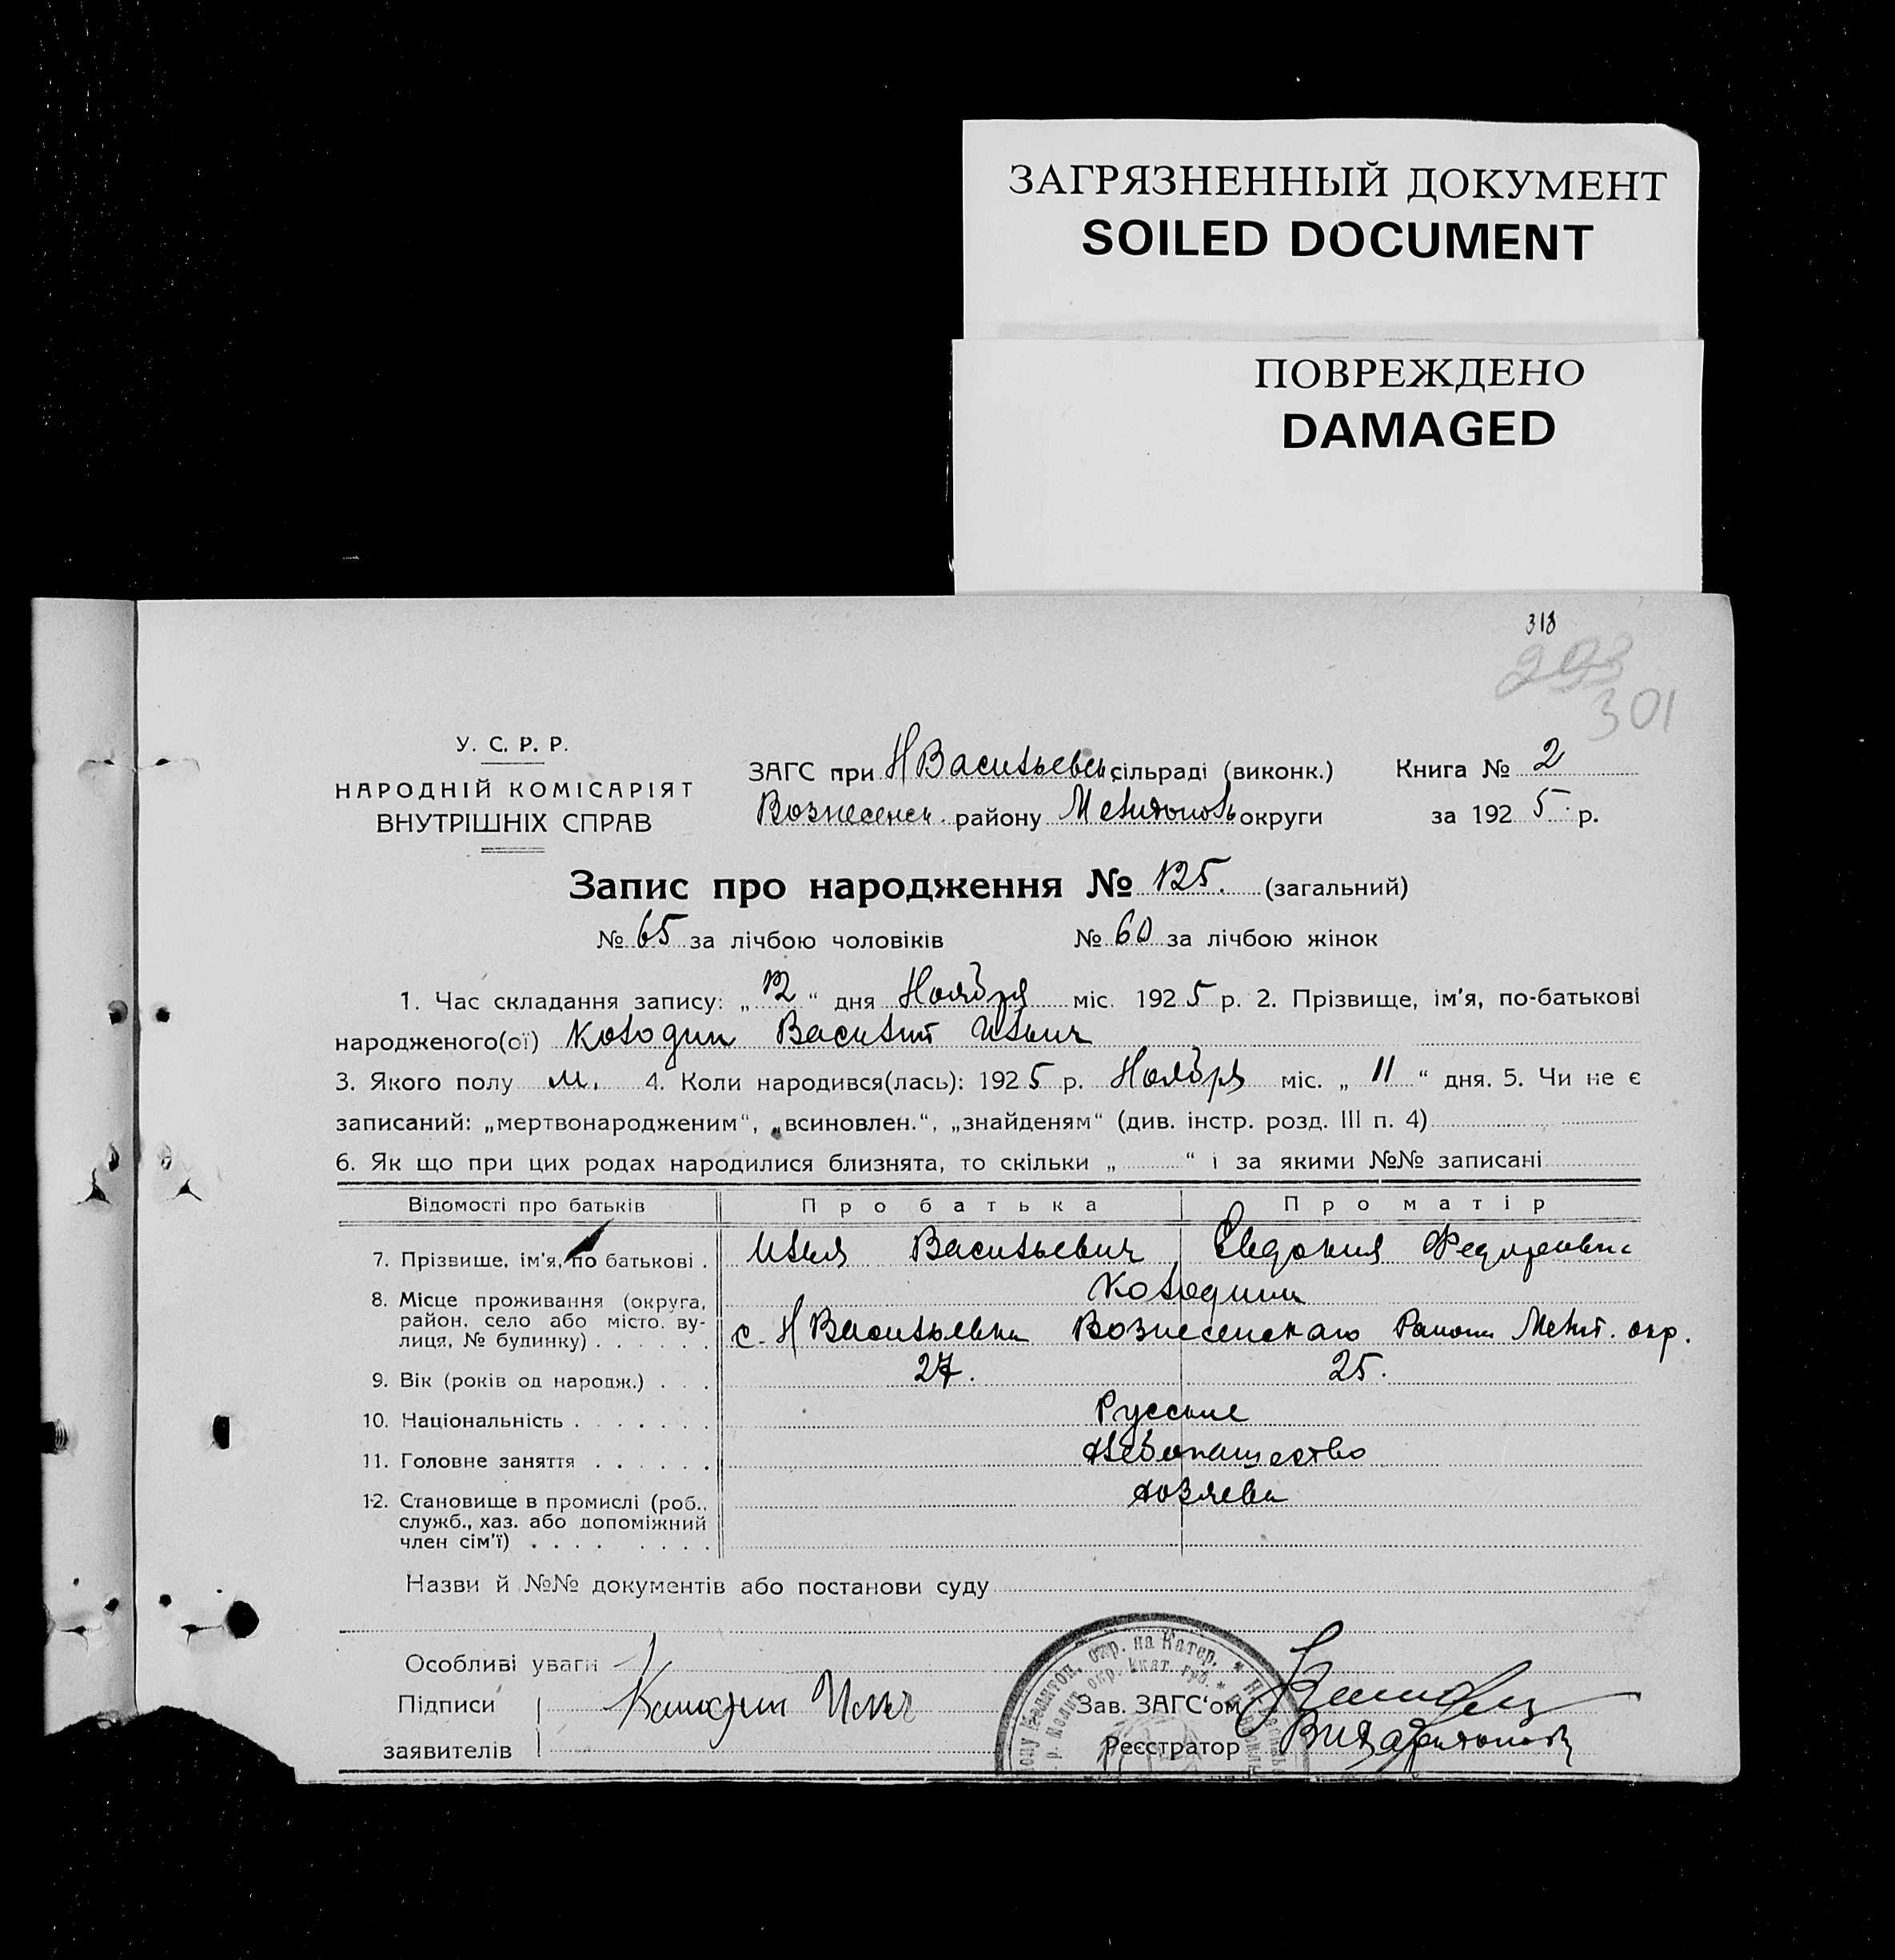 ЗАГРЯЗНЕННЫЙ ДОКУМЕНТ
SOILED DOCUMENT
ПОВРЕЖДЕНО
DAMAGED
318
293
301
У. С. Р. Р.
НАРОДНІЙ КОМІСАРІЯТ
ВНУТРІШНІХ СПРАВ
ЗАГС при Н Васильевск сільраді (виконк.) Книга № 2
Вознесенск. району Мелитополь округи за 1925 р.
Запис про народження № 125. (загальний)
№ 65 за лічбою чоловіків № 60 за лічбою жінок
1. Час складання запису: „12“ дня Ноября міс. 1925 р. 2. Прізвище, ім'я, по-батькові
народженого(ої) Колодин Василий Ильич
3. Якого полу м. 4. Коли народився(лась): 1925 р. Ноября міс. „11“ дня. 5. Чи не є
записаний: „мертвонародженим“, „всиновлен.“, „знайденям“ (див. інстр. розд. III п. 4)
6. Як що при цих родах народилися близнята, то скільки „ “ і за якими №№ записані
Відомості про батьків Про батька Про матір
7. Прізвише, ім'я, по батькові . Илья Васильевич Евдокия Федоровна
Колодины
8. Місце проживання (округа,
район. село або місто. ву-
лиця, № будинку) . . . . . . с. Н Васильевка Вознесенскаго Района Мелит. окр.
9. Вік (років од народж.) . . . 27. 25.
10. Національність . . . . . . . Русские
11. Головне заняття . . . . . . Хлебопашество
12. Становище в промислі (роб.,
служб., хаз. або допоміжний
член сім'ї) . . . . . . . . Хозяева
Назви й №№ документів або постанови суду
Особливі уваги
Підписи Колодин Илья Зав. ЗАГС'ом
заявителів Реєстратор